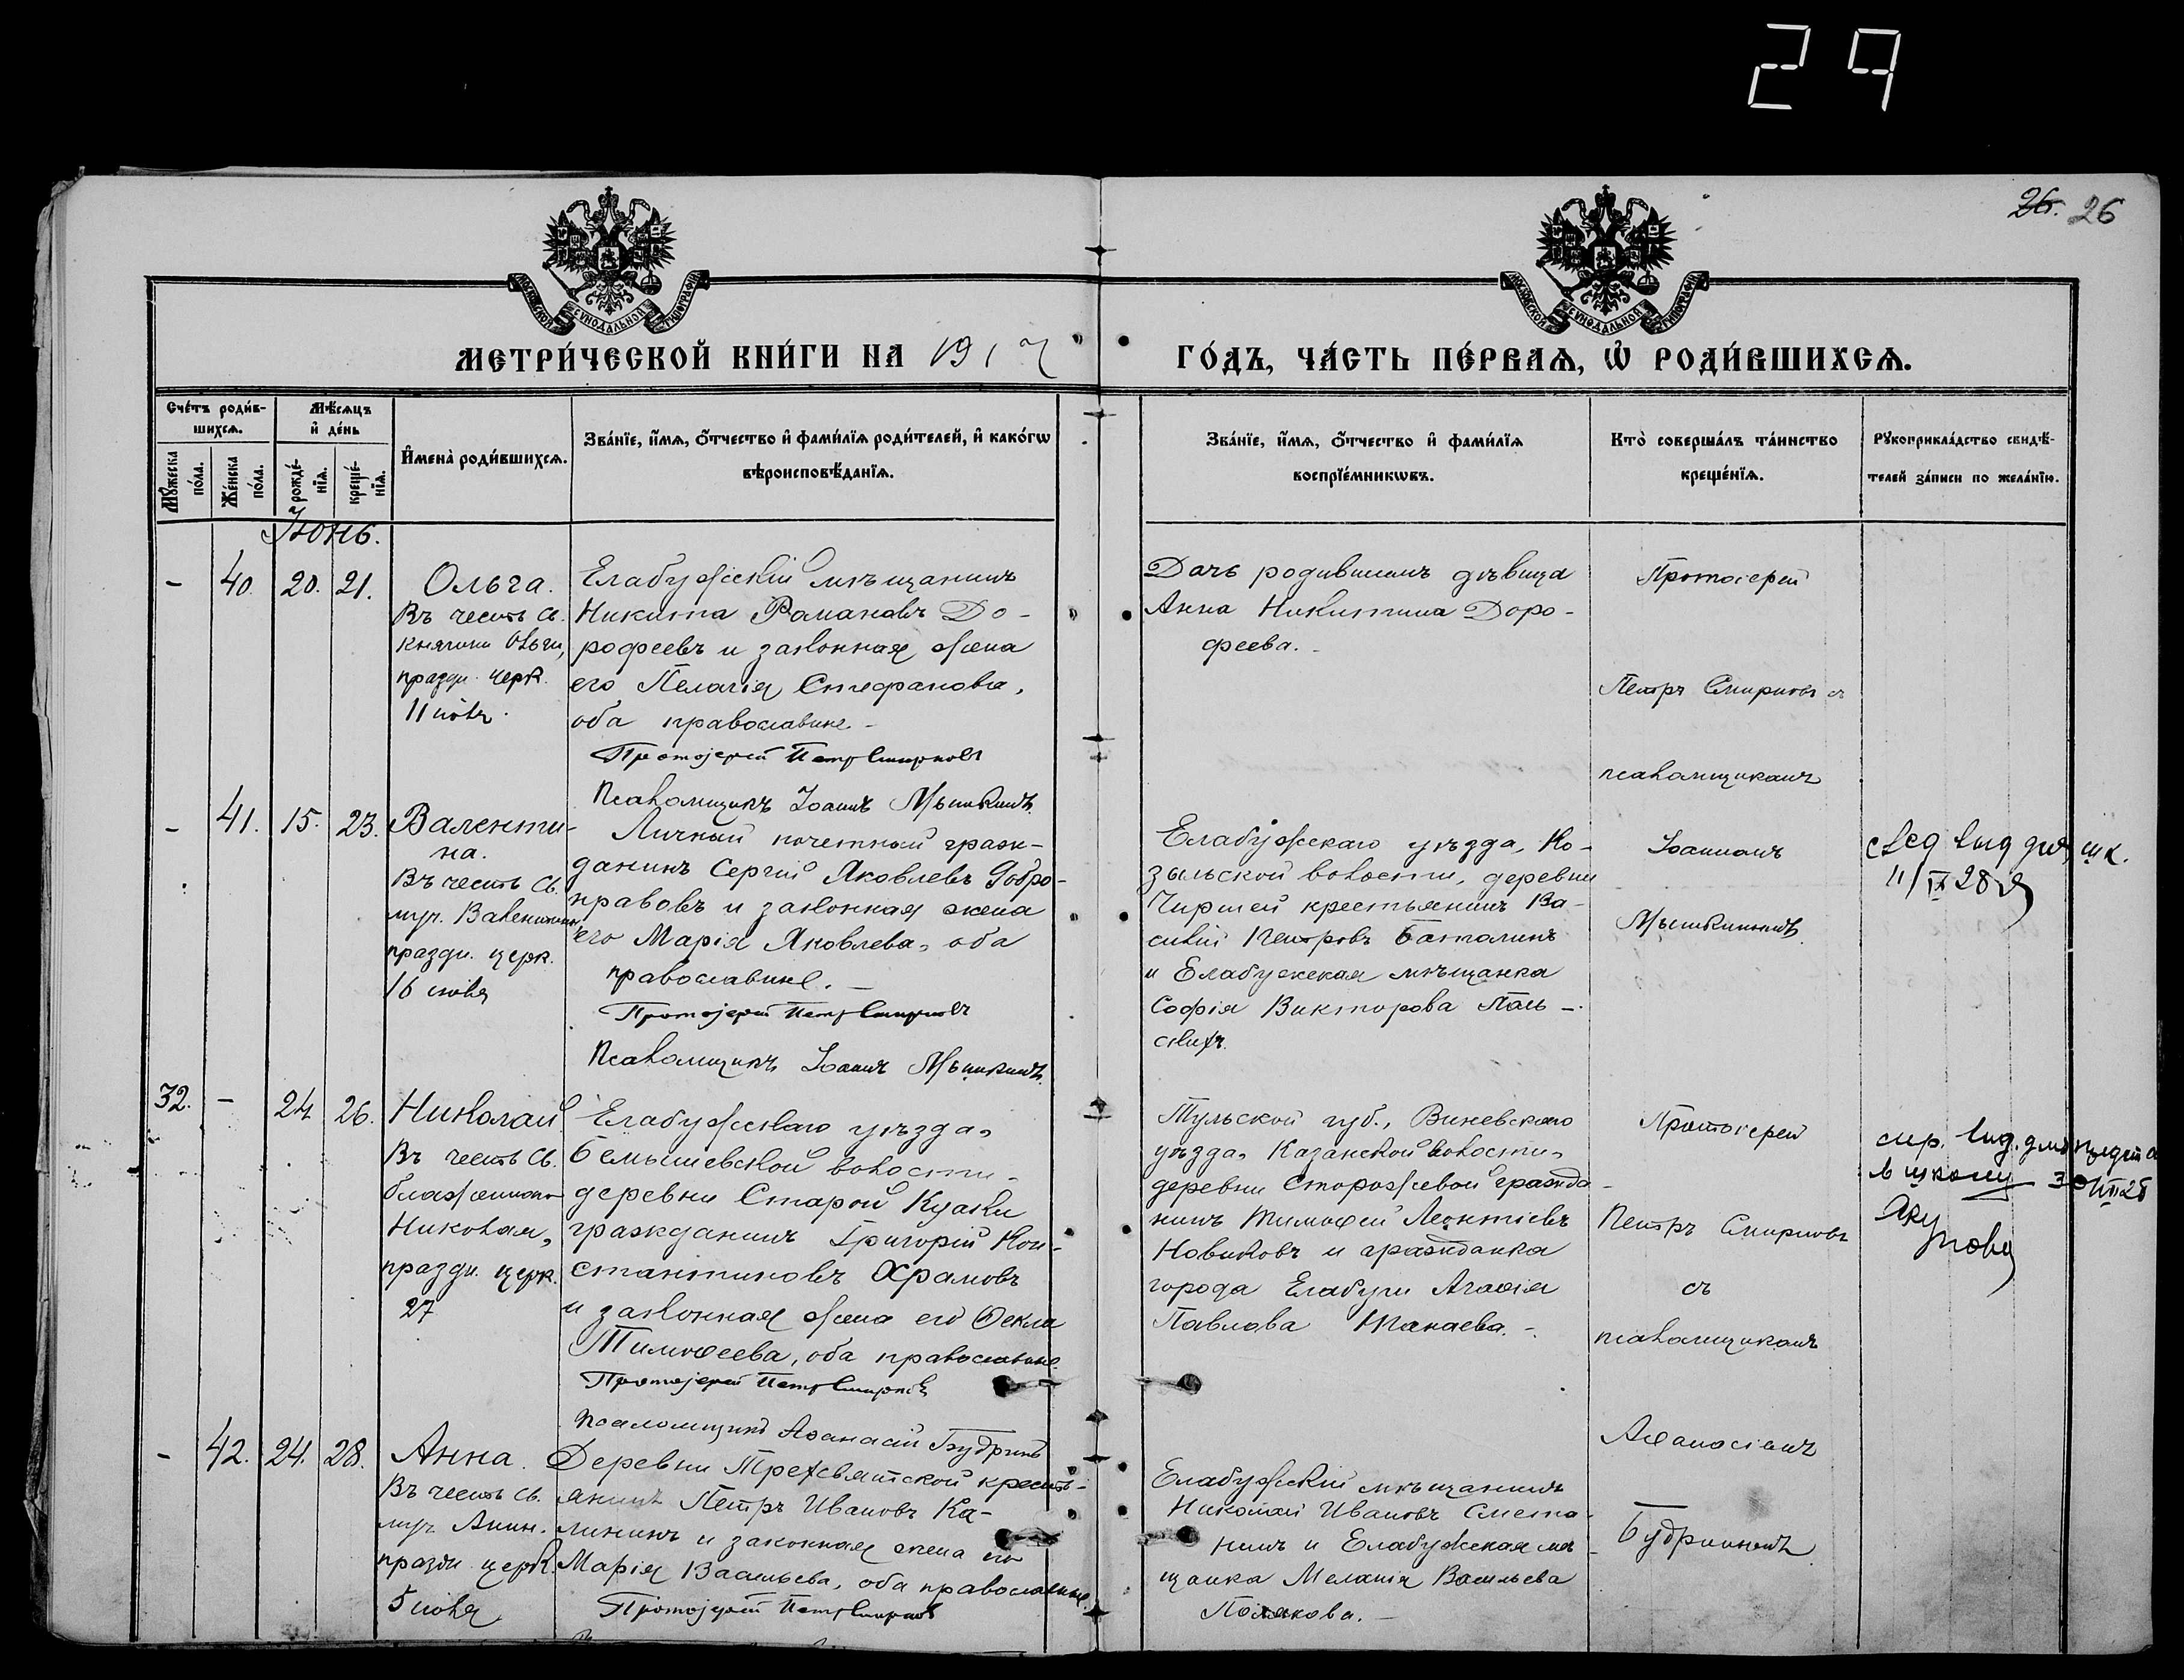 29
26. 26
МОСКОВСКОЙ СУНОДАЛЬНОЙ ТИПОГРАФІИ
МОСКОВСКОЙ СУНОДАЛЬНОЙ ТИПОГРАФІИ
МЕТРИ́ЧЕСКОЙ КНИ́ГИ НА 1917
ГО́ДЪ, ЧА́СТЬ ПЕ́РВАѦ, Ѡ҆ РОДИ́ВШИХСѦ.
Сче́тъ роди́в-
шихсѧ.
Мѣ́сѧцъ
и҆ де́нь
Мꙋ́жеска
по́ла.
Же́нска
по́ла.
рожде́-
нїѧ.
креще́-
нїѧ.
И҆мена̀ роди́вшихсѧ.
Зва́нїе, и҆́мѧ, ѻ҆́тчество и҆ фами́лїѧ роди́телей, и҆ како́гѡ
вѣроисповѣ́данїѧ.
Зва́нїе, и҆́мѧ, ѻ҆́тчество и҆ фами́лїѧ
воспрїе́мникѡвъ.
Кто̀ соверша́лъ та́инство
креще́нїѧ.
Рꙋкоприкла́дство свидѣ́-
телей за́писи по жела́нїю.
Іюнь.
- 40. 20. 21. Ольга.
Въ честь св.
княгини Ольги,
праздн. черк.
11 іюля.
Елабужскій мѣщанинъ
Никита Романовъ До-
рофеевъ и законная жена
его Пелагія Стефанова,
оба православные.-
Протоіерей Петръ Смирновъ
Псаломщикъ Іоаннъ Мышкинъ.
Дочь родившимъ дѣвица
Анна Никитина Доро-
феева.-
Протоіерей
Петръ Смирновъ съ
псаломщикомъ
Іоанномъ
Мышкинымъ.
- 41. 15. 23. Валенти-
на.
Въ честь св.
муч. Валентины
праздн. церк.
16 іюля
Личный почетный граж-
данинъ Сергій Яковлевъ Добро-
нравовъ и законная жена
его Марія Яковлева, оба
православные.-
Протоіерей Петръ Смирновъ
Псаломщикъ Іоаннъ Мышкинъ.
Елабужскаго уѣзда, Ко-
зыльской волости, деревни
Чиршей крестьянинъ Ва-
силій Петровъ Баталинъ
и Елабужская мѣщанка
Софія Викторова Поль-
скихъ.
выд для шк.
11/IX 28
32. - 24 26. Николай
Въ честь св.
блаженнаго
Николая,
праздн. церк.
27
Елабужскаго уѣзда,
Бемышевской волости
деревни Старой Куклы
гражданинъ Григорій Кон-
стантиновъ Храмовъ
и законная жена его Ѳекла
Тимоѳеева, оба православные.
Протоіерей Петръ Смирновъ
псаломщикъ Аѳанасій Будринъ
Тульской губ., Виневскаго
уѣзда, Казанской волости,
деревни Сторожевой гражда-
нинъ Тимоѳей Леонтіевъ
Новиковъ и гражданка
города Елабуги Агаѳія
Павлова
Протоіерей
Петръ Смирновъ
съ
псаломщикомъ
Аѳанасіемъ
Будринымъ.
в школу
- 42. 24. 28. Анна.
Въ честь св.
муч. Анны.
праздн. церк.
5 іюля
Деревни Трехсвятской кресть-
янинъ Петръ Ивановъ Ка-
лининъ и законная жена его
Марія Васильева, оба православные.
Протоіерей Петръ Смирновъ
Елабужскій мѣщанинъ
Николай Ивановъ Смета-
нинъ и Елабужская мѣ-
щанка Меланія Васильева
Полякова.-